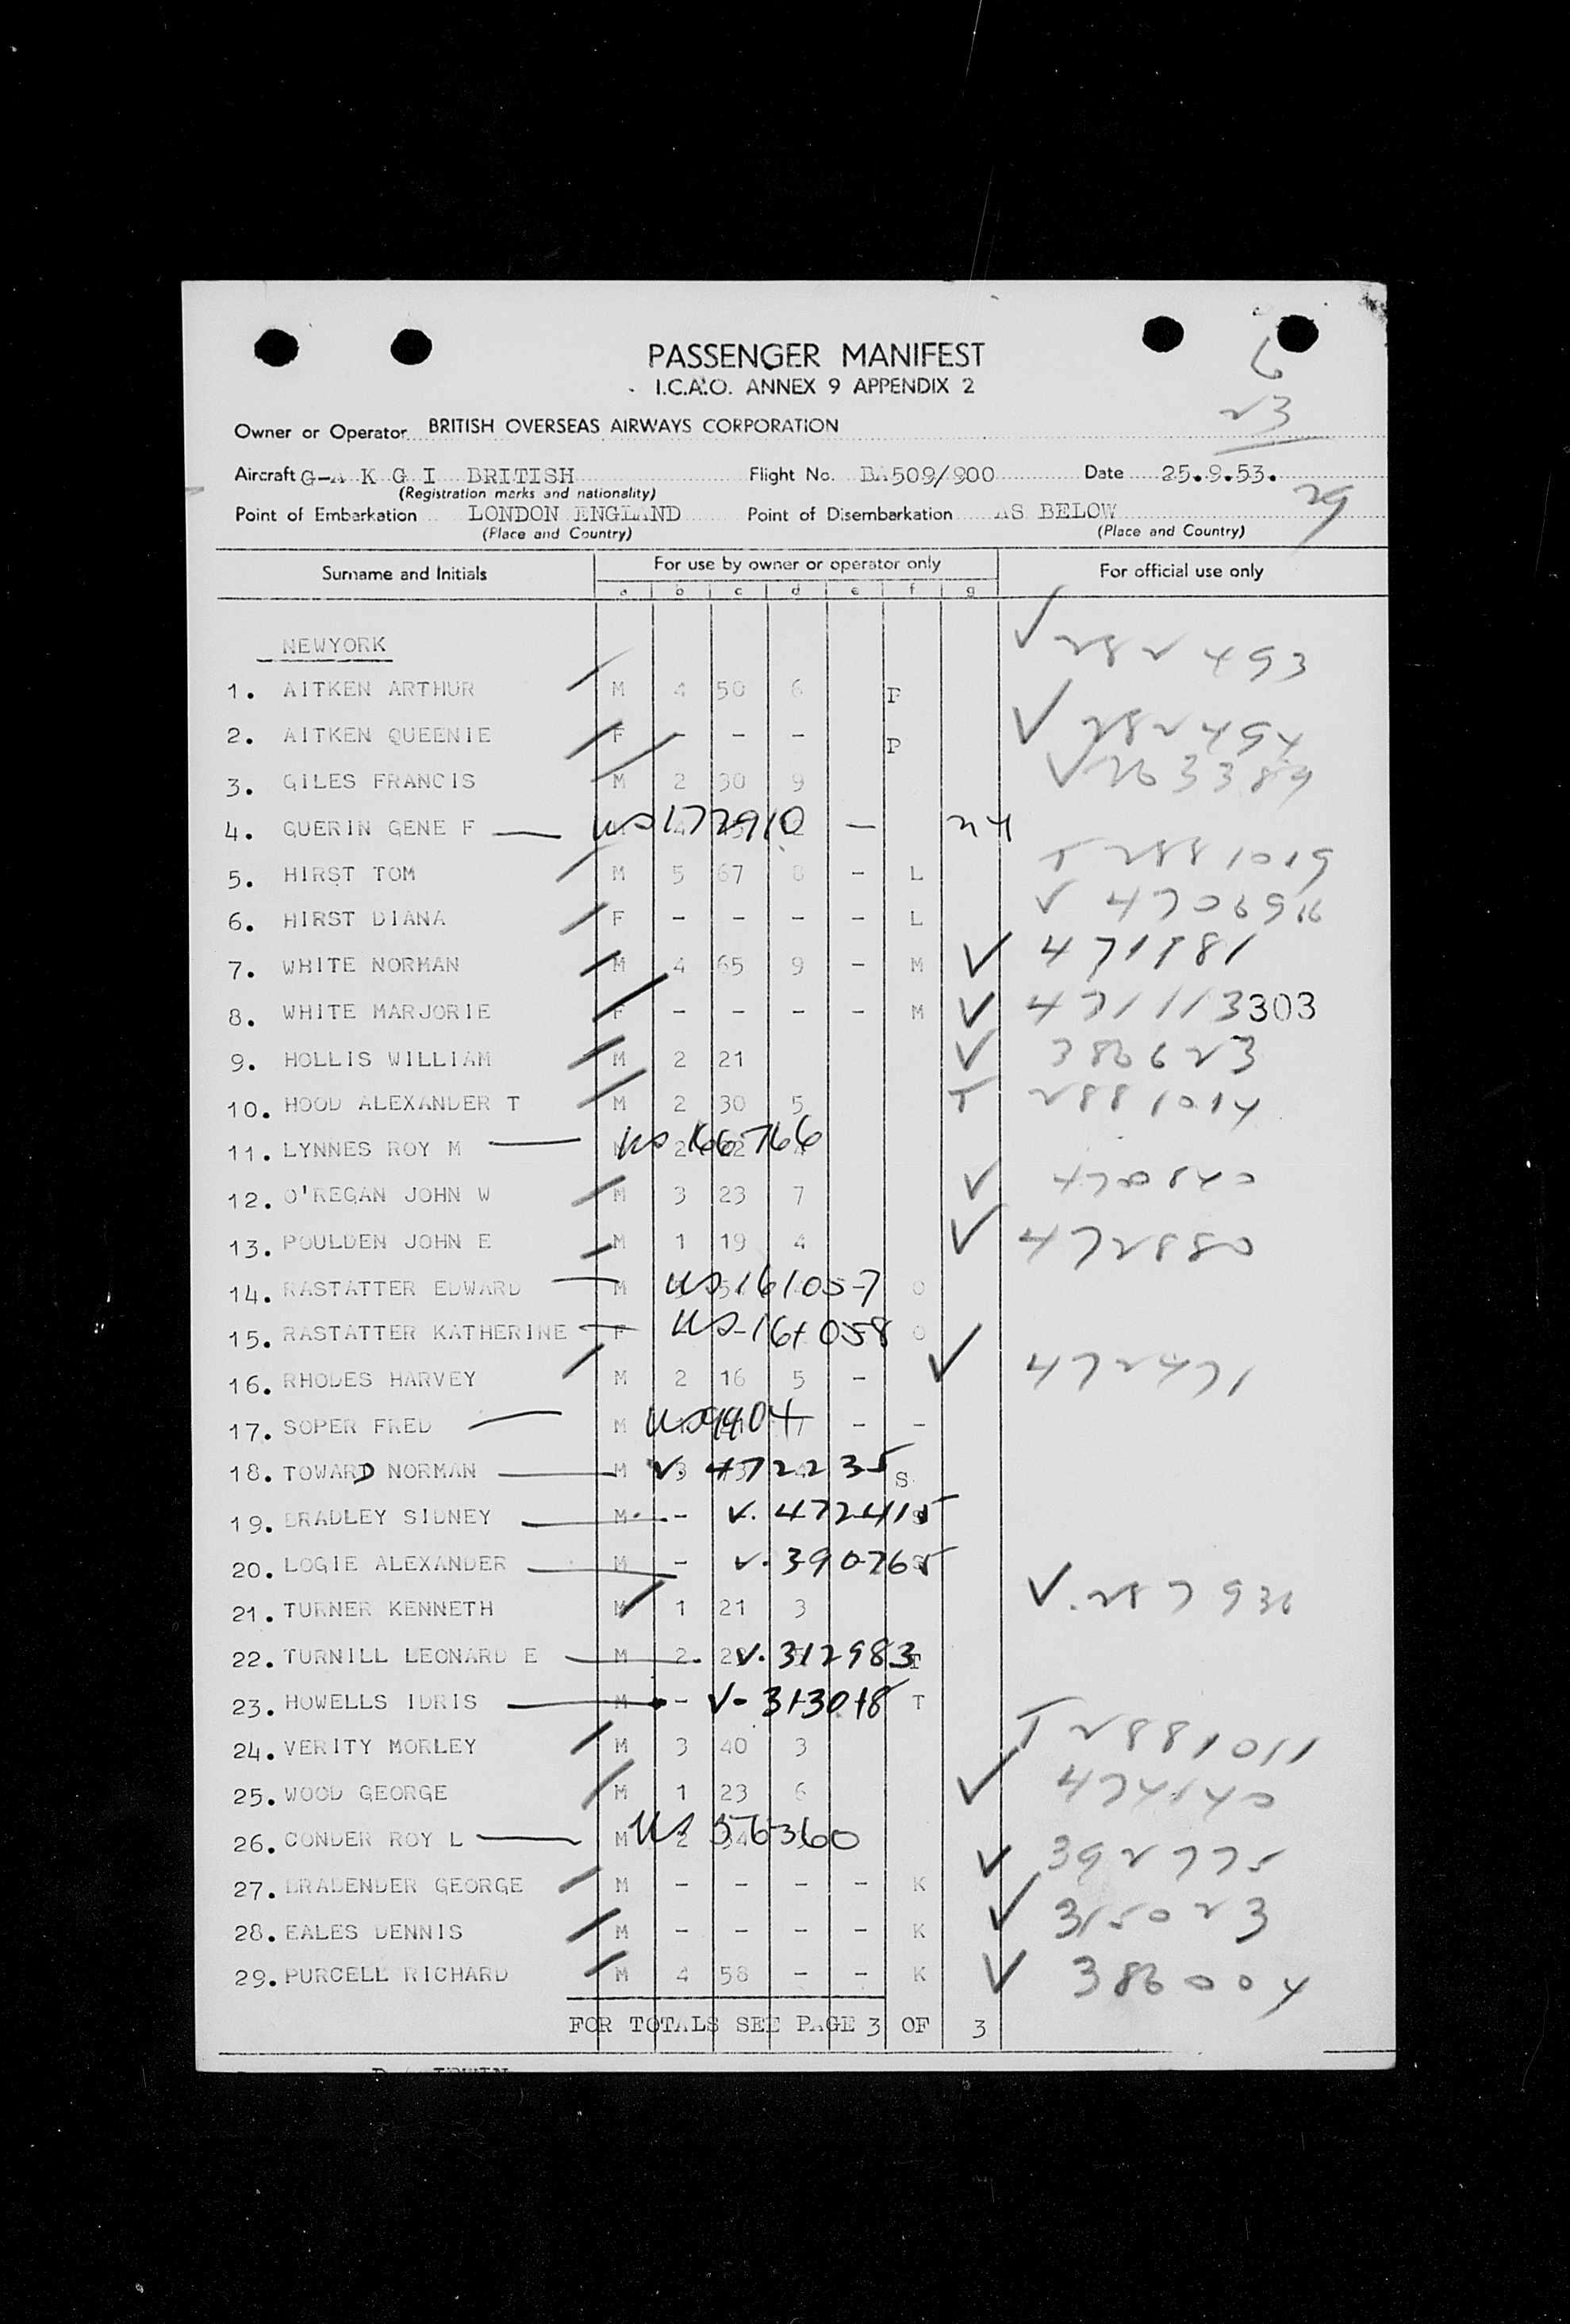 6
23
PASSENGER MANIFEST
I.C.A.O. ANNEX 9 APPENDIX 2
Owner or Operator BRITISH OVERSEAS AIRWAYS CORPORATION
Aircraft G-A K G I BRITISH Flight No. BA509/900 Date 25.9.53.
(Registration marks and nationality)
29
Point of Embarkation LONDON ENGLAND Point of Disembarkation AS BELOW
(Place and Country) (Place and Country)
Surname and Initials For use by owner or operator only For official use only
a b c d e f g
NEWYORK
1. AITKEN ARTHUR M 4 50 6 P ✓ 282493
2. AITKEN QUEENIE F - - - P ✓ 282494
3. GILES FRANCIS M 2 30 9 ✓ 263389
4. GUERIN GENE F US 172910 - 24
5. HIRST TOM M 5 67 8 - L T 2881019
6. HIRST DIANA F - - - - L ✓
7. WHITE NORMAN M 4 65 9 - M ✓ 471181
8. WHITE MARJORIE F - - - - M ✓ 471113 303
9. HOLLIS WILLIAM M 2 21 ✓ 386623
10. HOOD ALEXANDER T M 2 30 5 T 2881014
11. LYNNES ROY M US 166766
12. O'REGAN JOHN W M 3 23 7 ✓ 470840
13. POULDEN JOHN E M 1 19 4 ✓ 472880
14. RASTATTER EDWARD M US 161057 O
15. RASTATTER KATHERINE F US-161058 O
16. RHODES HARVEY M 2 16 5 - ✓ 472471
17. SOPER FRED M US 9904 - -
18. TOWARD NORMAN M V. 472235 S
19. BRADLEY SIDNEY M - V. 472415
20. LOGIE ALEXANDER M - V. 390765
21. TURNER KENNETH M 1 21 3 V. 287936
22. TURNILL LEONARD E M 2 V. 312983 T
23. HOWELLS IDRIS M - V- 313018 T
24. VERITY MORLEY M 3 40 3 T 2881011
25. WOOD GEORGE M 1 23 6 ✓ 474140
26. CONDER ROY L M US 56360
27. BRABENDER GEORGE M - - - - K ✓ 392775
28. EALES DENNIS M - - - - K ✓ 315023
29. PURCELL RICHARD M 4 58 - - K ✓ 386004
FOR TOTALS SEE PAGE 3 OF 3